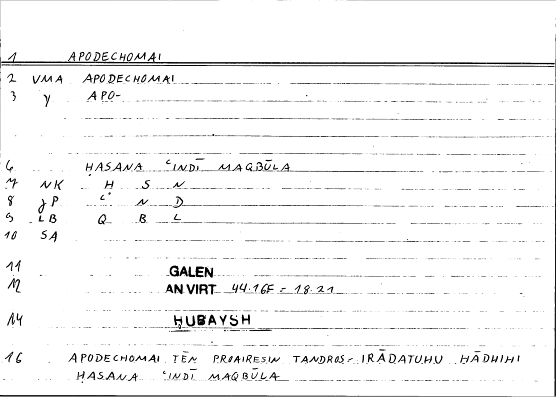 1 APODECHOMAI
2 VMA APODECHOMAI
3 γ APO-
6 ḤASANA ʿINDĪ MAQBŪLA
7 NK Ḥ S N
8 gP ʿ N D
9 LB Q B L
10 SA
11 GALEN
12 AN VIRT 44.16F = 18.21
14 ḤUBAYSH
16 APODECHOMAI TĒN PROAIRESIN TANDROS- IRĀDATUHU HĀDHIHI
ḤASANA ʿINDĪ MAQBŪLA